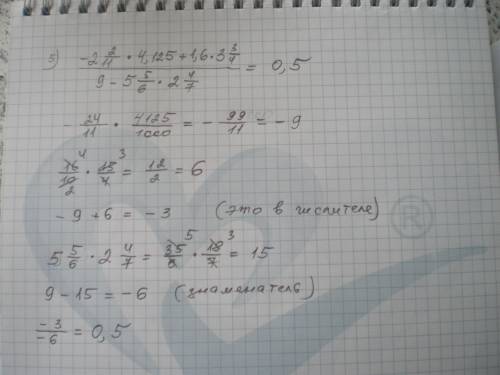 5) (-2 2/11 · 4,125 + 1,6 · 3 3/4) / (9 - 5 5/6 · 2 4/7) = 0,5
- 24/11 · 4125/1000 = - 99/11 = - 9
16/10 · 15/4 = 12/2 = 6 4 3 2
- 9 + 6 = - 3 (это в числителе)
5 5/6 · 2 4/7 = 35/6 · 18/7 = 15 5 3
9 - 15 = - 6 (знаменатель)
-3/-6 = 0,5
®